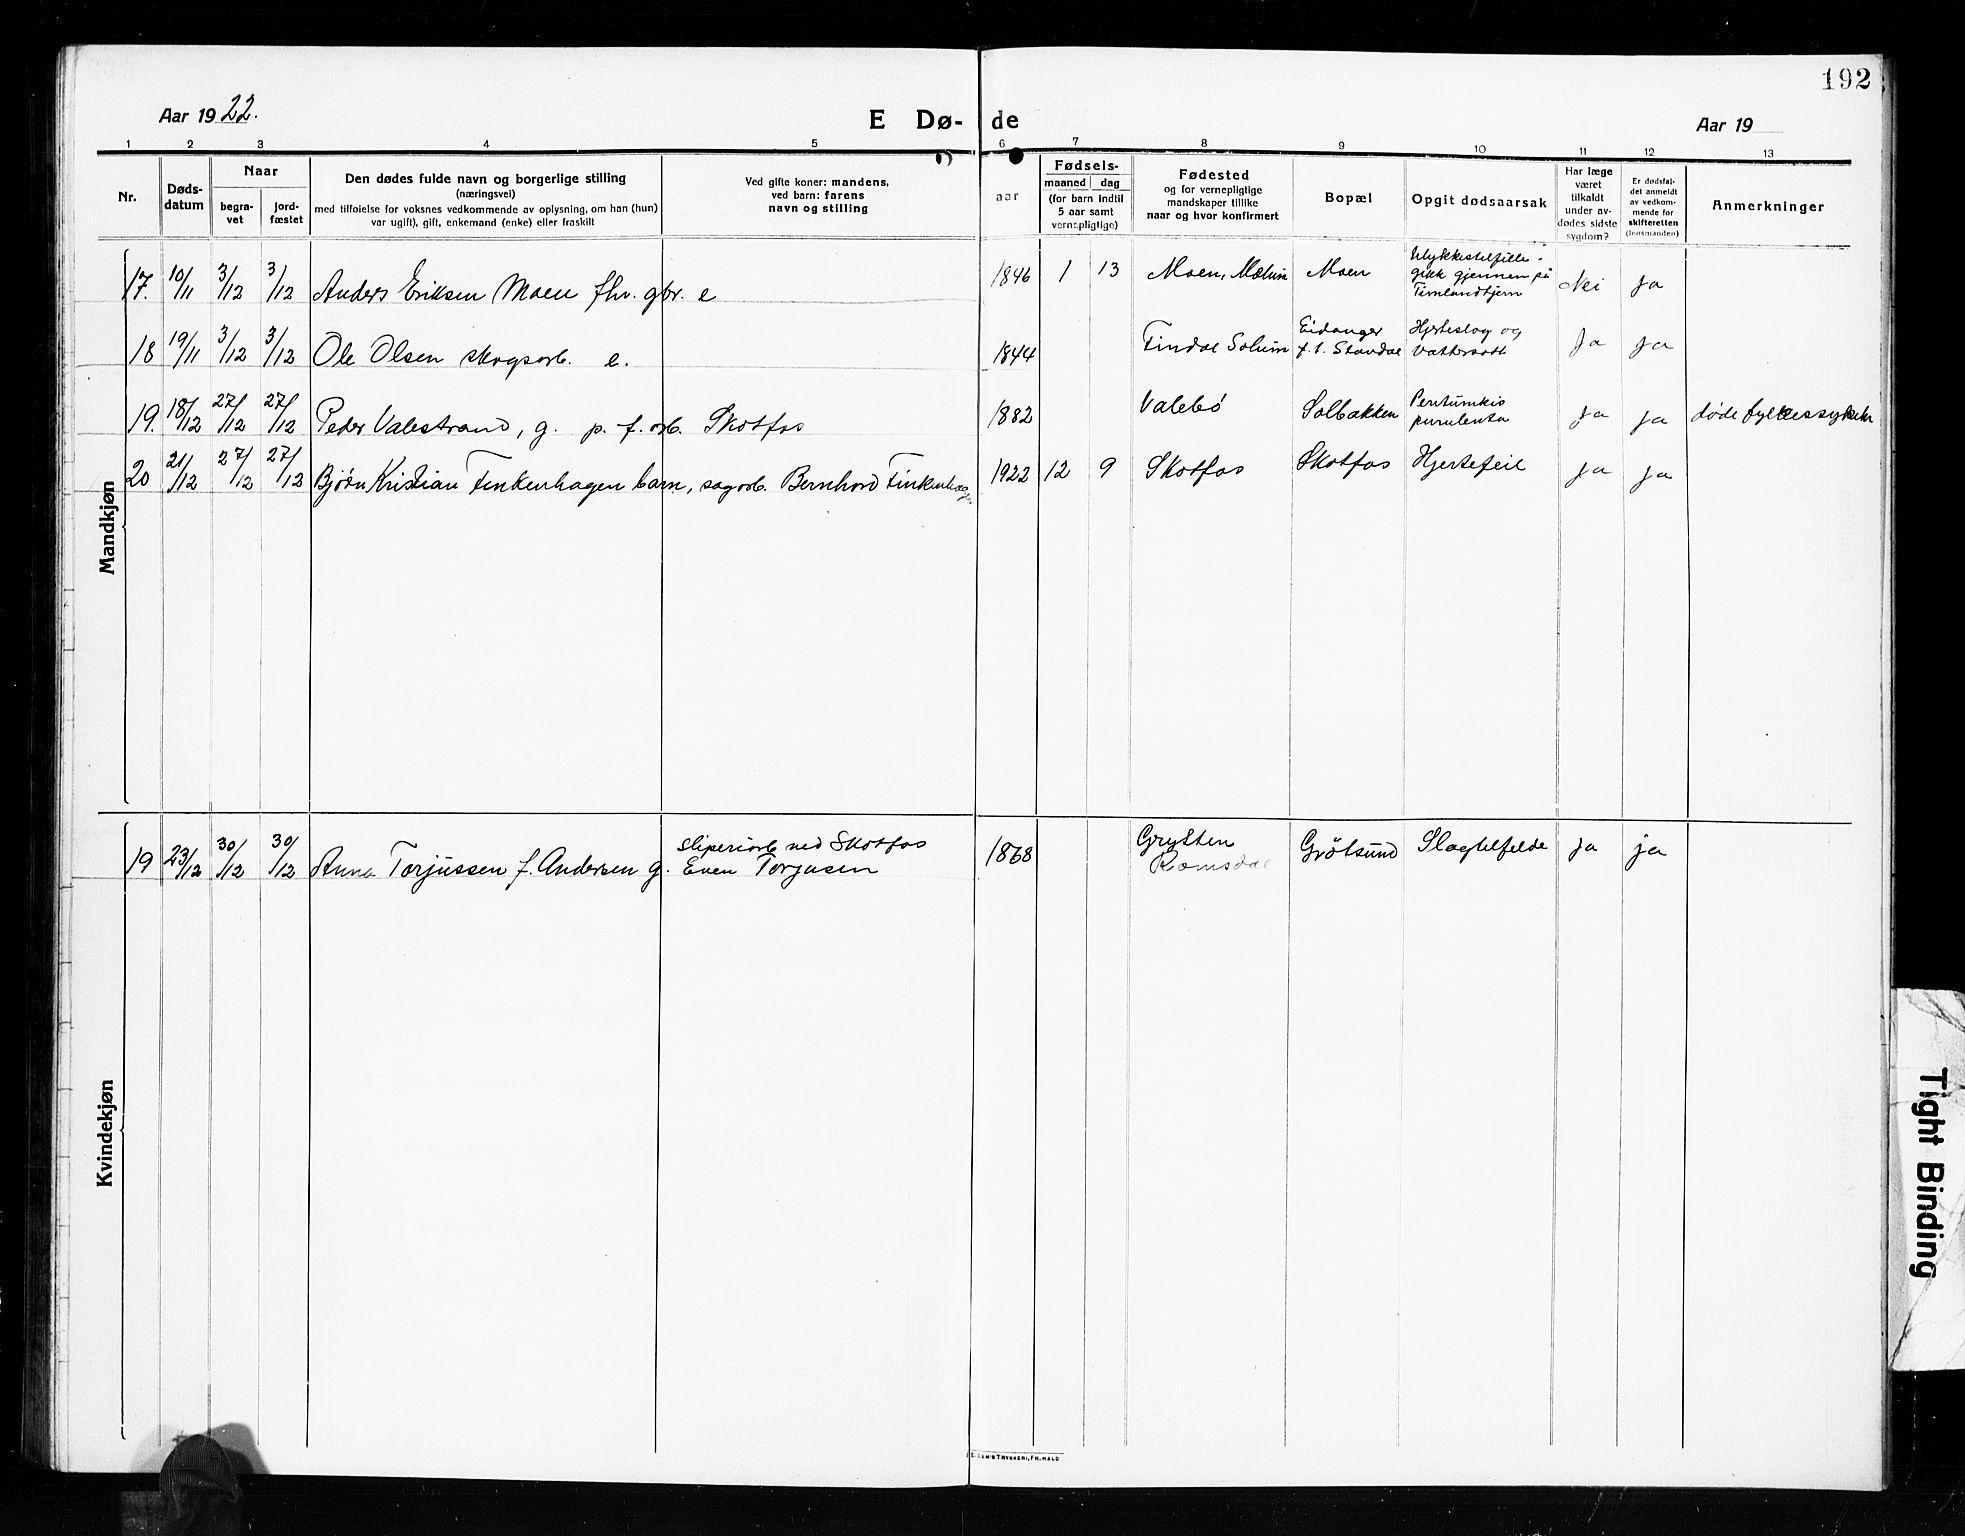 192
Aar 1922.
E Dø- de
Aar 19
1 2 3 4 5 6 7 8 9 10 11 12 13
Nr.
Døds-
datum
Naar
begra-
vet
jord-
fæstet
Den dødes fulde navn og borgerlige stilling
(næringsvei)
med tilføielse for voksnes vedkommende av oplysning, om han (hun)
var ugift), gift, enkemand (enke) eller fraskilt
Ved gifte koner: mandens,
ved barn: farens
navn og stilling
aar
Fødsels-
maaned dag
(for barn indtil
5 aar samt
vernepligtige)
Fødested
og for vernepligtige
mandskaper tillike
naar og hvor konfirmert
Bopæl
Opgit dødsaarsak
Har læge
været
tilkaldt
under av-
dødes sidste
sygdom?
Er dødsfal-
det anmeldt
av vedkom-
mende for
skifteretten
(lensmanden)
Anmerkninger
Mandkjøn
17. 10/11 3/12 3/12 Anders Eriksen Moen fhv. gbr. e 1846 1 13 Moen, Mælum Moen Ulykkestilfælle -
gikk gjennem på
Timlandtjern Nei ja
18 19/11 3/12 3/12 Ole Olsen skogsarb. e. 1844 Findal Solum Eidanger
f. t. Standal Hjerteslag og
vattersott Ja ja
19. 18/12 27/12 27/12 Peder Valestrand, g. p. f. arb. Skotfos 1882 Valebö Solbakken
purulenta ja ja døde
20 21/12 27/12 27/12 Bjørn Kristian Finkenhagen barn, sagarb. Bernhard Finkenhagen 1922 12 9 Skotfos Skotfos Hjertefeil ja ja
Kvindekjøn
19 23/12 30/12 30/12 Anna Torjussen f. Andersen g. sliperiarb ved Skotfos
Even Torjusen 1868 Grytten
Romsdal Grötsund Slagtilfelde ja ja
Tight Binding